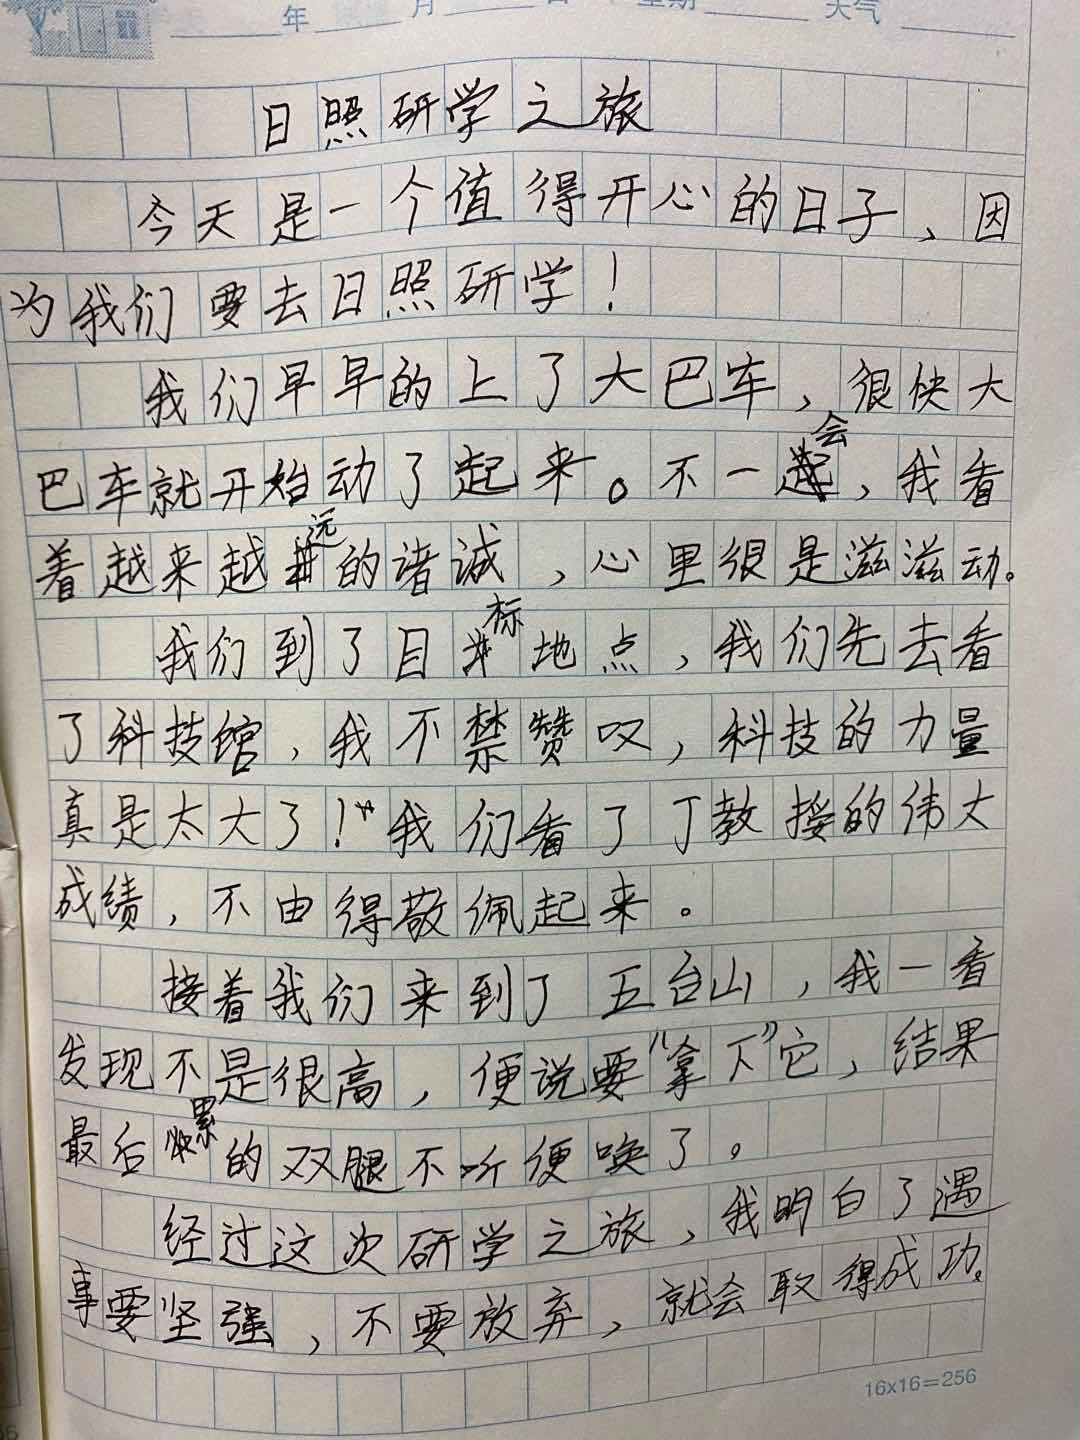 年 月 日 星期 天气
日照研学之旅
今天是一个值得开心的日子、因
为我们要去日照研学！
我们早早的上了大巴车，很快大
巴车就开始动了起来。不一会，我看
着越来越远的诸诚，心里很是滋滋动。
我们到了目标地点，我们先去看
了科技馆，我不禁赞叹，科技的力量
真是太大了！我们看了丁教授的伟大
成绩，不由得敬佩起来。
接着我们来到了五台山，我一看
发现不是很高，便说要“拿下”它，结果
最后累的双腿不听便唤了。
经过这次研学之旅，我明白了遇
事要坚强，不要放弃，就会取得成功。
16x16=256